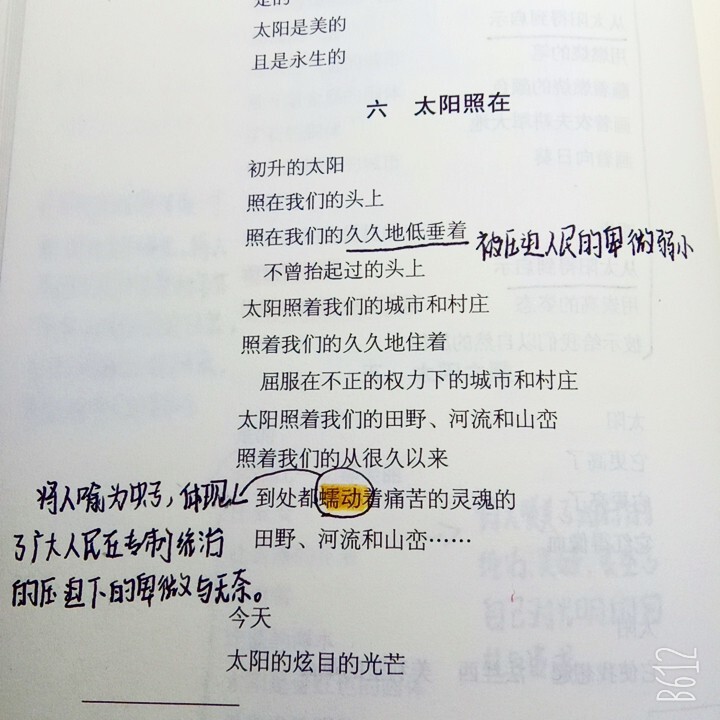 是的
太阳是美的
且是永生的
六 太阳照在
初升的太阳
照在我们的头上
照在我们的久久地低垂着
被压迫人民的卑微弱小
不曾抬起过的头上
太阳照着我们的城市和村庄
照着我们的久久地住着
屈服在不正的权力下的城市和村庄
太阳照着我们的田野、河流和山峦
照着我们的从很久以来
到处都蠕动着痛苦的灵魂的
田野、河流和山峦……
将人喻为虫,体现
了广大人民在专制统治
的压迫下的卑微与无奈。
今天
太阳的炫目的光芒
B612